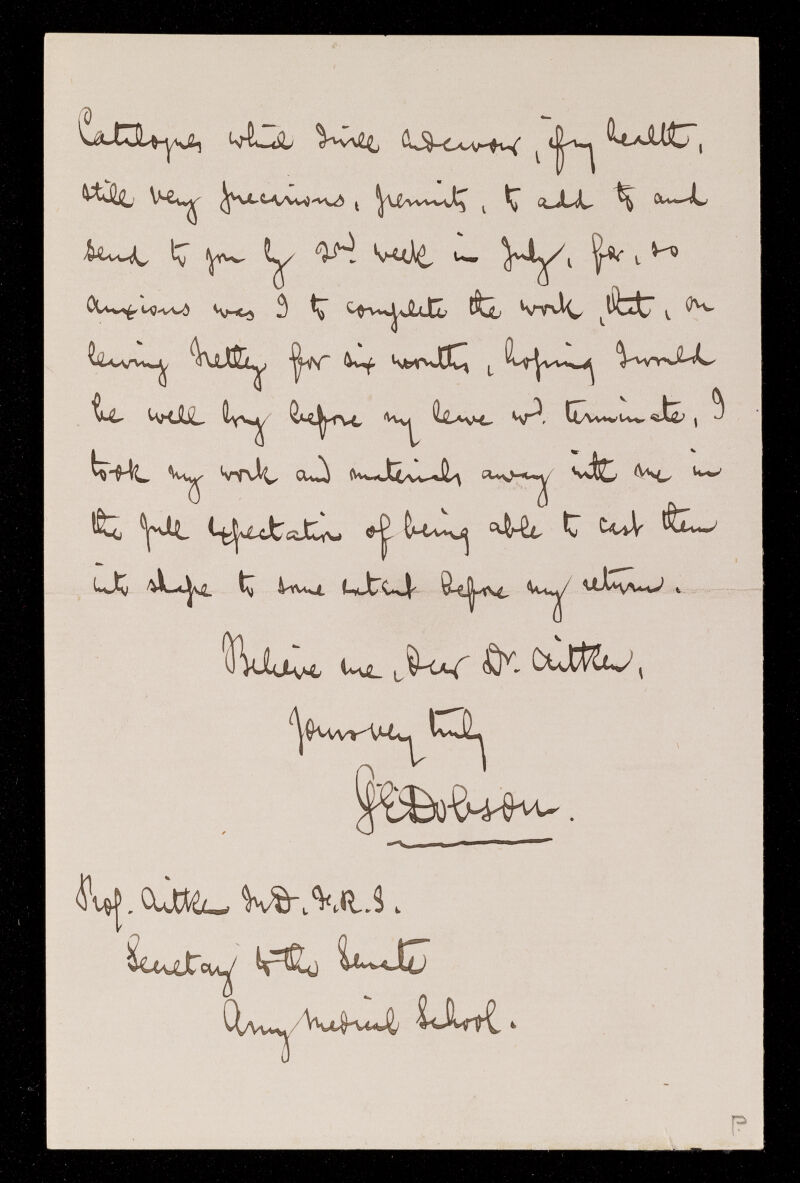 Catalogues which I will endeavour, if my health,
still very precarious, permits, to add to and
send to you by 2nd. week in July, for, so
anxious was I to complete the work, that, on
leaving Netley for six months, hoping I would
be well long before my leave wd. terminate, I
took my work and materials away with me in
the full expectation of being able to cast them
into shape to some extent before my return.
Believe me, dear Dr. Aitken,
Yours very truly
G.E. Dobson.
Prof. Aitken M.D. F.R.S.
Secretary to the Senate
Army Medical School.
P.